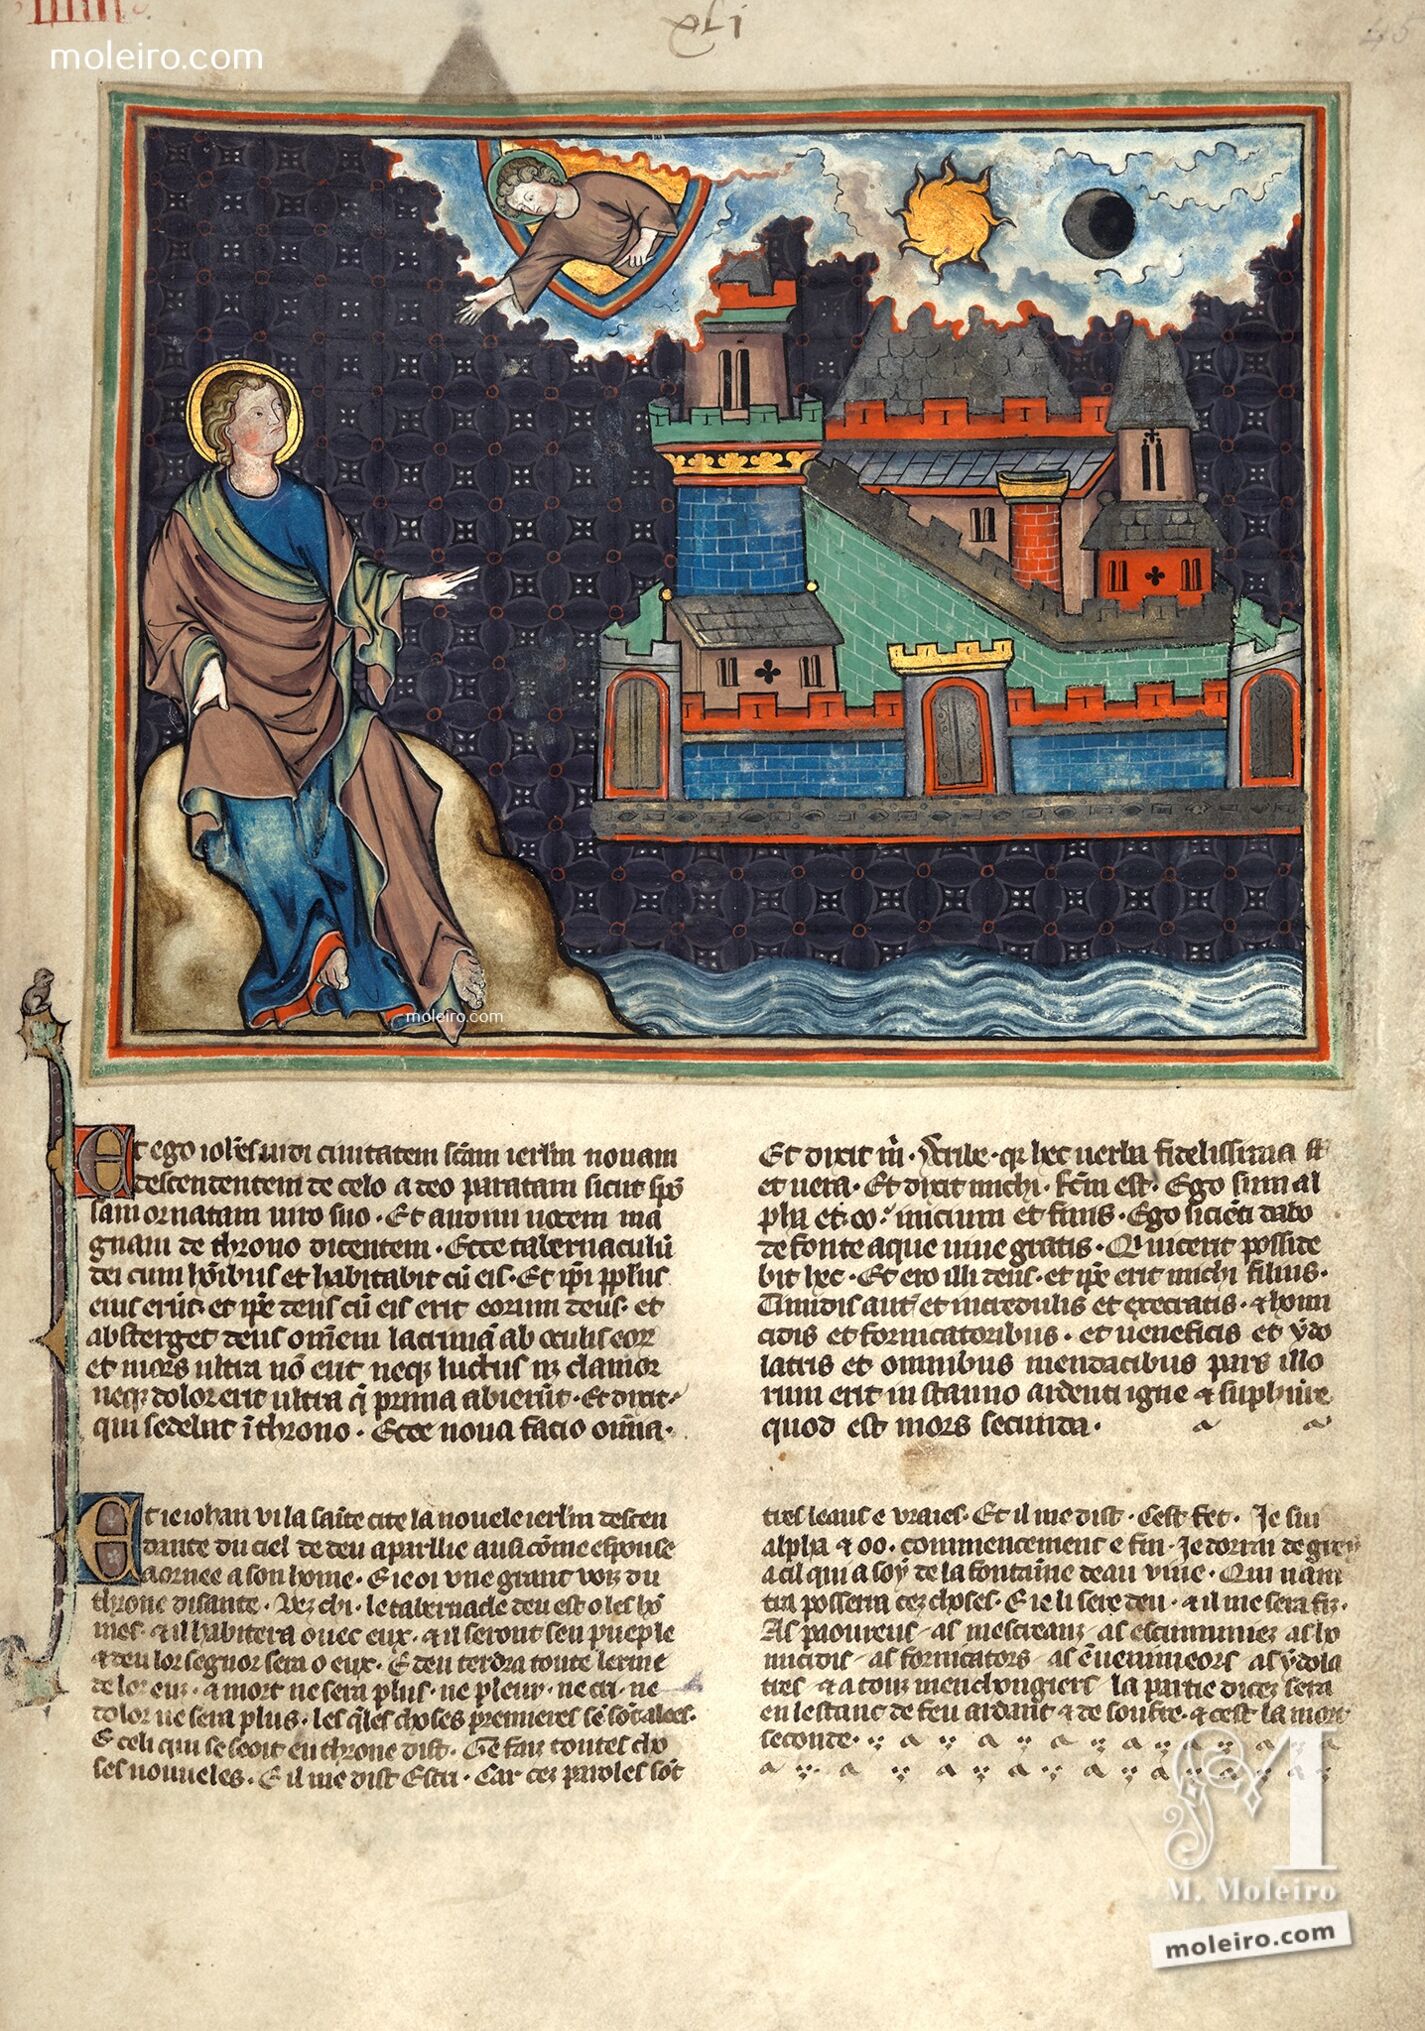 moleiro.com
xli
45
moleiro.com
Et ego ioh̄es uidi ciuitatem sc̄am ierl̄m nouam
descendentem de celo a deo paratam sicut spō
sam ornatam uiro suo · Et audiui uocem ma
gnam de throno dicentem · Ecce tabernaculū
dei cum hōibus et habitabit cū eis · Et ip̄i pp̄lus
eius erūt · et ip̄e deus cū eis erit eorum deus · et
absterget deus om̄em lacrimā ab oculis eoꝝ
et mors ultra nō erit neqꝫ luctus nꝫ clamor
neqꝫ dolor erit ultra q̄ prima abierūt · Et dixit ·
qui sedebat ī throno · Ecce noua facio om̄ia ·
Et dixit m̄ · Scribe · qꝛ hec uerba fidelissima sūt
et uera · Et dixit michi · fc̄m est · Ego sum al
pha et · oo · inicium et finis · Ego sicīeti dabo
de fonte aque uiue gratis · Qi uicerit posside
bit hec · Et ero illi deus · et ip̄e erit michi filius ·
Timidis aut̄ et incredulis et execratis · ⁊ homi
cidis et fornicatoribus · et ueneficis et ydo
latris et omnibus mendacibus pars illo
rum erit in stanno ardenti igne ⁊ sulphure
quod est mors secunda ·
Et ie iohan vi la saīte cite la nouele ierl̄m descen
dante du ciel de deu aparllie ausi cōme espouse
aornee a son home · E ie oi vne grant voiz du
throne disante · Vez chi · le tabernacle deu est o les hō
mes · ⁊ il habitera ouec eux · ⁊ il seront seu pueple
⁊ deu lor segnor sera o eux · E deu terdra toute lerme
de lor euz · a mort ne sera plus · ne pleur · ne cri · ne
dolor ne sera plus · les q̄les choses premieres se sōt alees ·
E celi qui se seoit en throne dist · Ge faiz toutes cho
ses nouueles · E il me dist Escri · Car cez paroles sōt
tres leaus e vraies · Et il me dist · Cest fet · Je sui
alpha ⁊ oo · commencement e fin · Je dorrai de grey
a cil qui a soy de la fontaine deau viue · Qui uain
tra possera cez choses · E ie li sere deu · ⁊ il me sera fiz ·
As paoureus as mescreanz as escumuniez as ho
micidis as fornicators as ēuenimeors as ydola
tres ⁊ a touz menchongiers la partie dicez sera
en lestanc de feu ardant ⁊ de soufre · ⁊ cest la mort
seconde ·
M. Moleiro
moleiro.com